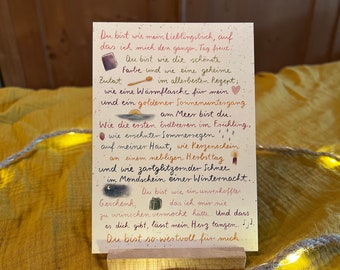 Du bist wie mein Lieblingsbuch, auf
das ich mich den ganzen Tag freue.
Du bist wie die schönste
Farbe und wie eine geheime
Zutat im allerbesten Rezept,
wie eine Wärmflasche für mein
und ein goldener Sonnenuntergang
am Meer bist du.
Wie die ersten Erdbeeren im Frühling,
wie ersehnter Sommerregen
auf meiner Haut, wie Kerzenschein
an einem nebligen Herbsttag
und wie zartglitzernder Schnee
im Mondschein einer Winternacht.
Du bist wie ein unverhofftes
Geschenk, das ich mir nie
zu wünschen vermocht hätte. Und dass
es dich gibt, lässt mein Herz tanzen.
Du bist so wertvoll für mich